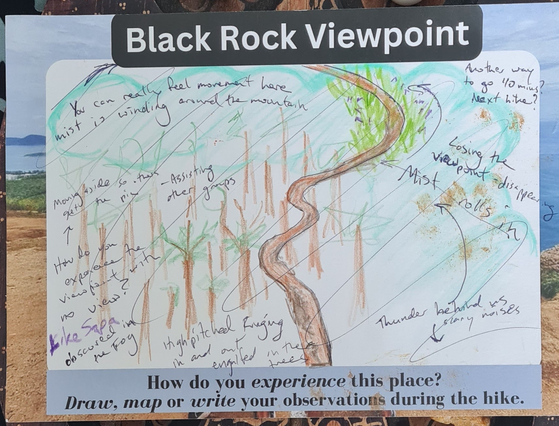 Black Rock Viewpoint
You can really feel movement here
mist is winding around the mountain
Another way
to go 40 mins?
Next hike?
Losing the
viewpoint
disappearing
Mist
rolls
in
- Assisting
other groups
Moving aside so they
get the
How do you
experience the
viewpoint with
no view?
Like Sapa
obscured in
the fog
High pitched
in and out
in the
trees
Thunder behind us
noises
How do you experience this place?
Draw, map or write your observations during the hike.